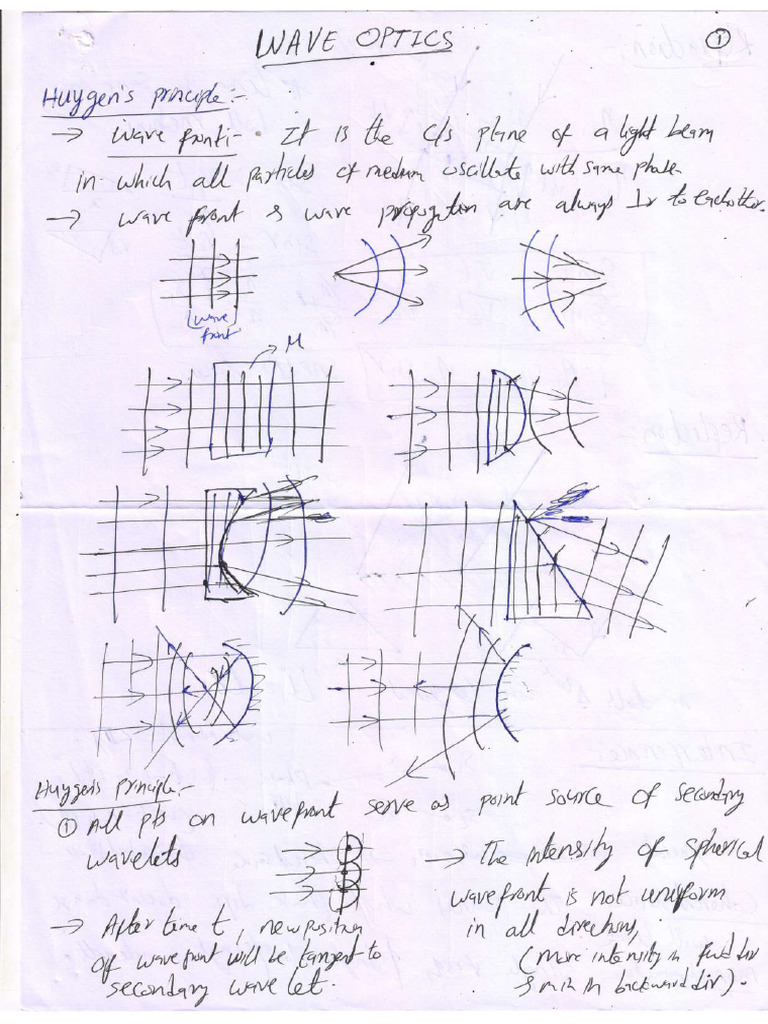 WAVE OPTICS
①
Huygen's principle:-
→ Wave front:- It is the c/s plane of a light beam
in which all particles of medium oscillate with same phase.
→ wave front & wave propogation are always ⊥r to eachother.
wave
front
M
Huygen's principle:-
① All pts on wavefront serve as point source of secondary
wavelets
→ After time t, new position
of wavefront will be tangent to
secondary wavelet.
→ The intensity of spherical
wavefront is not uniform
in all directions,
(more intensity in fwd dir
& min in backward dir).